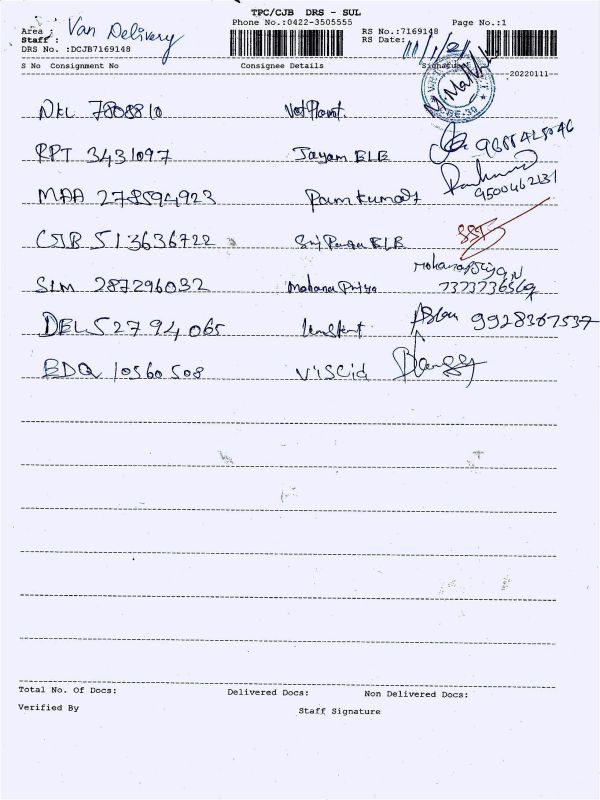 TPC/CJB DRS - SUL
Phone No.:0422-3505555 Page No.:1
Area : Van Delivery RS No.:7169148
Staff : RS Date:
DRS No. :DCJB7169148
S No Consignment No Consignee Details Signature
20220111
NKL 7808810
RPT 3431097 Jayam ELE 9688428046
MAA 278594923 Pamkumar 9500462131
CJB 513636722 Sri ELE SST
SLM 287296032 Mohana Priya Mohanapriya N
7373736569
DEL 52794065 9928367537
BDQ 10560508 Viscid
Total No. Of Docs: Delivered Docs: Non Delivered Docs:
Verified By Staff Signature